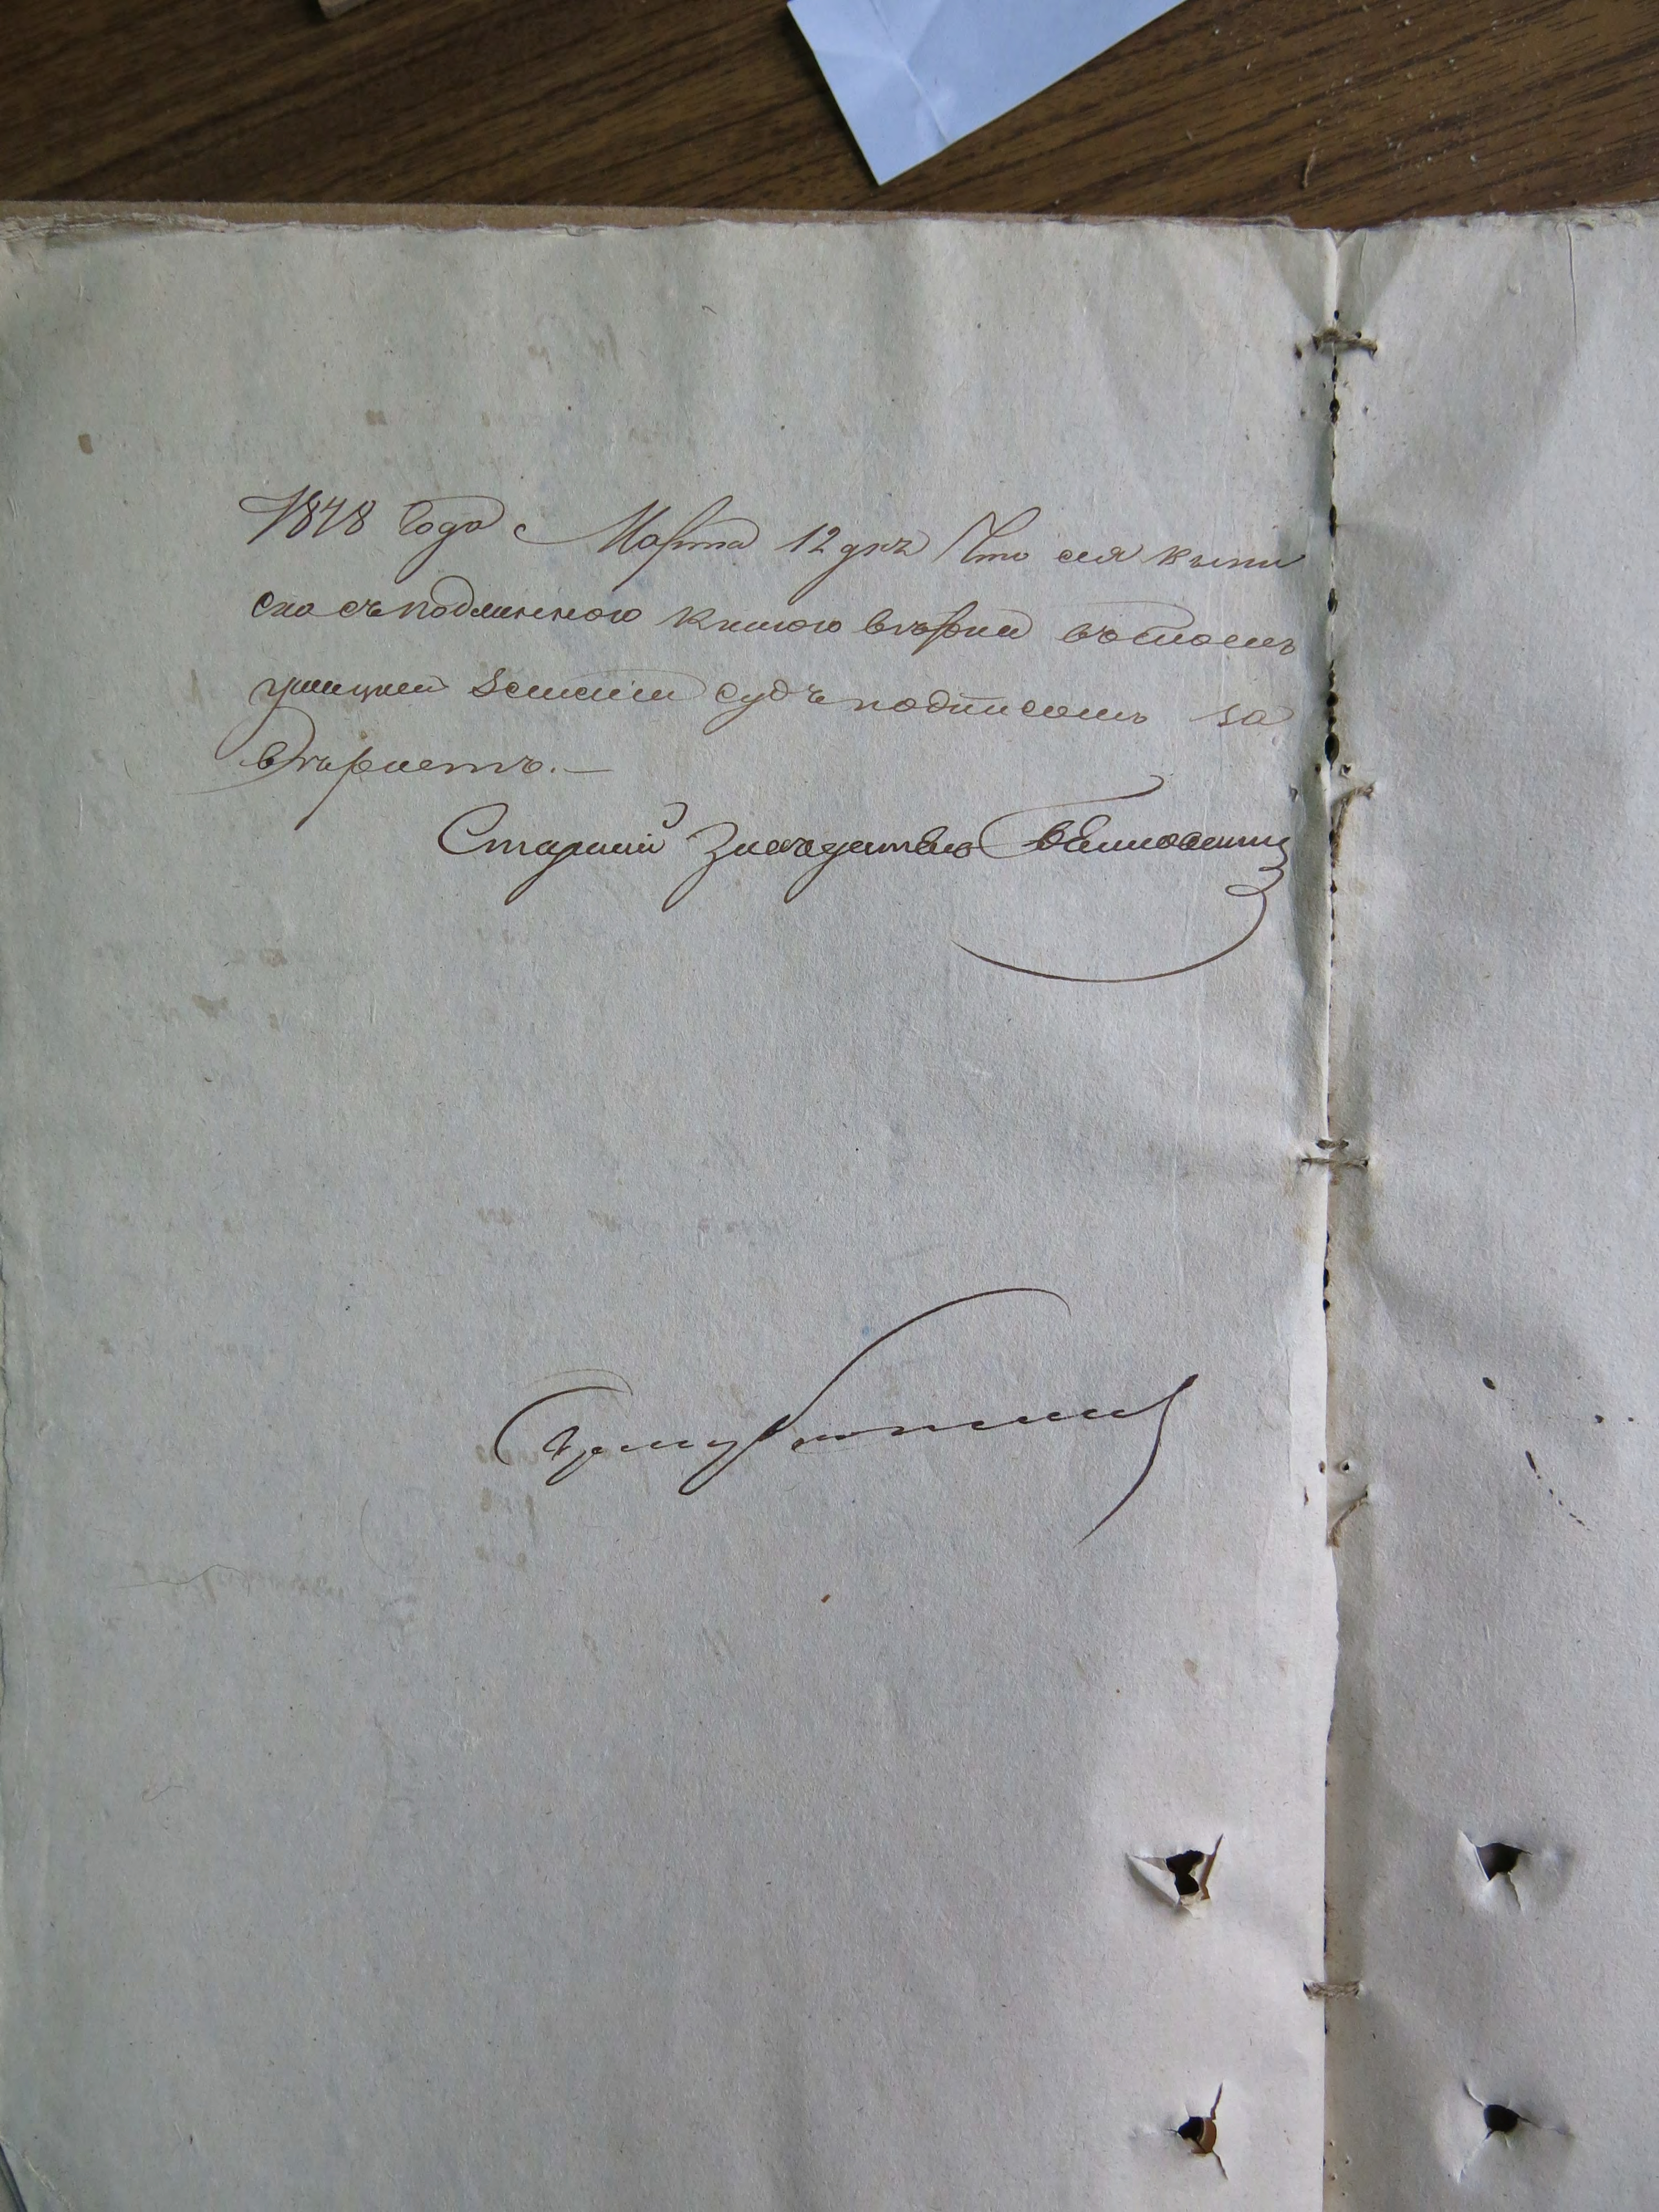 1848 года Марта 12 дня Что сія выпи
ска съ подлинною книгою вѣрна въ томъ
Ушицкий Земский судъ подписомъ за
вѣряетъ. —
Старший Заседатель